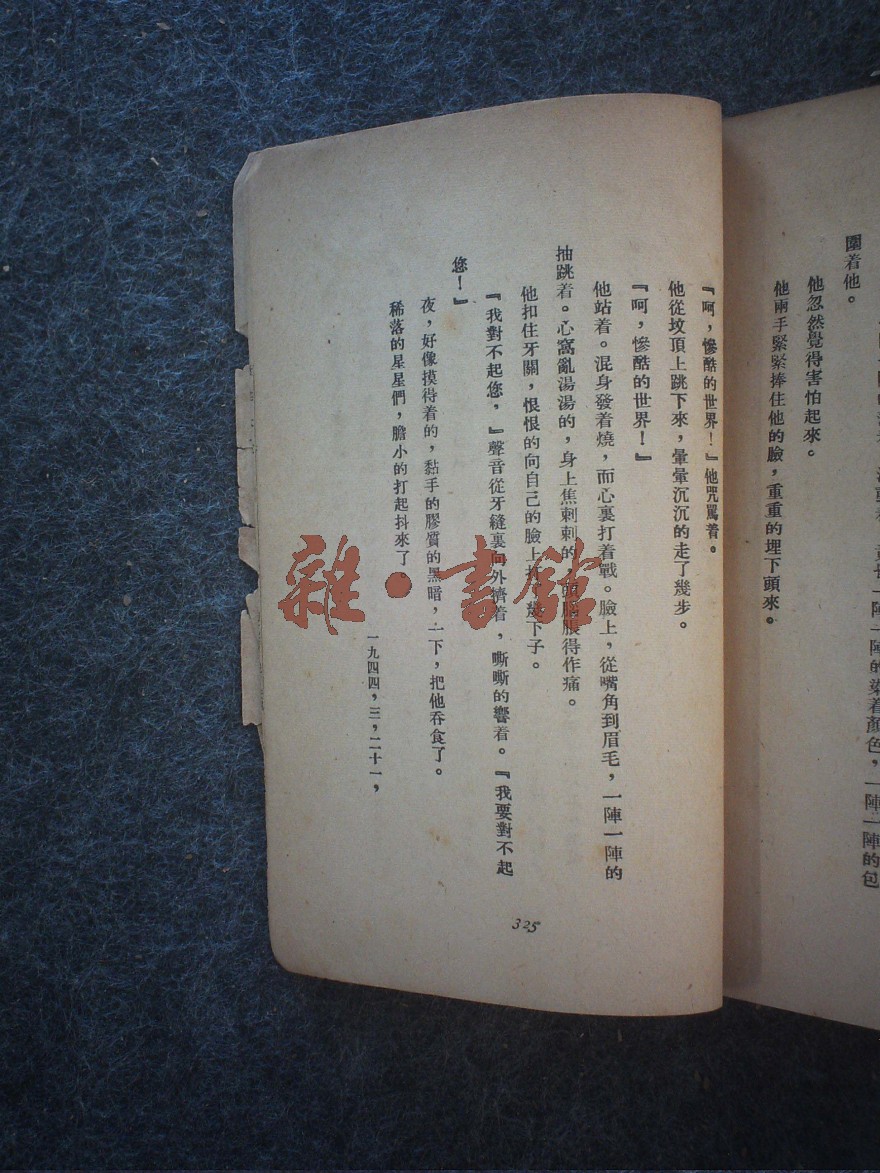 一陣一陣的染着顏色，一陣一陣的包
圍着他。
他忽然覺得害怕起來。
他兩手緊緊捧住他的臉，重重的埋下頭來。
『呵，慘酷的世界！』他咒罵着。
他從坟頂上跳下來，暈暈沉沉的走了幾步。
『呵，慘酷的世界！』
他站着。混身發着燒，而心裏打着戰。臉上，從嘴角到眉毛，一陣一陣的
抽跳着。心窩亂湯湯的，身上焦刺刺的，頭腦脹得作痛。
他扣住牙關，恨恨的向自己的臉上打了幾下子。
『我對不起您，』聲音從牙縫裏向外擠着，嘶嘶的響着。『我要對不起
您！』
夜，好像摸得着的，黏手的膠質的黑暗，一下，把他吞食了。
稀落的星星們，膽小的打起抖來了。
一九四四，三，二十一，
325
雜·書館